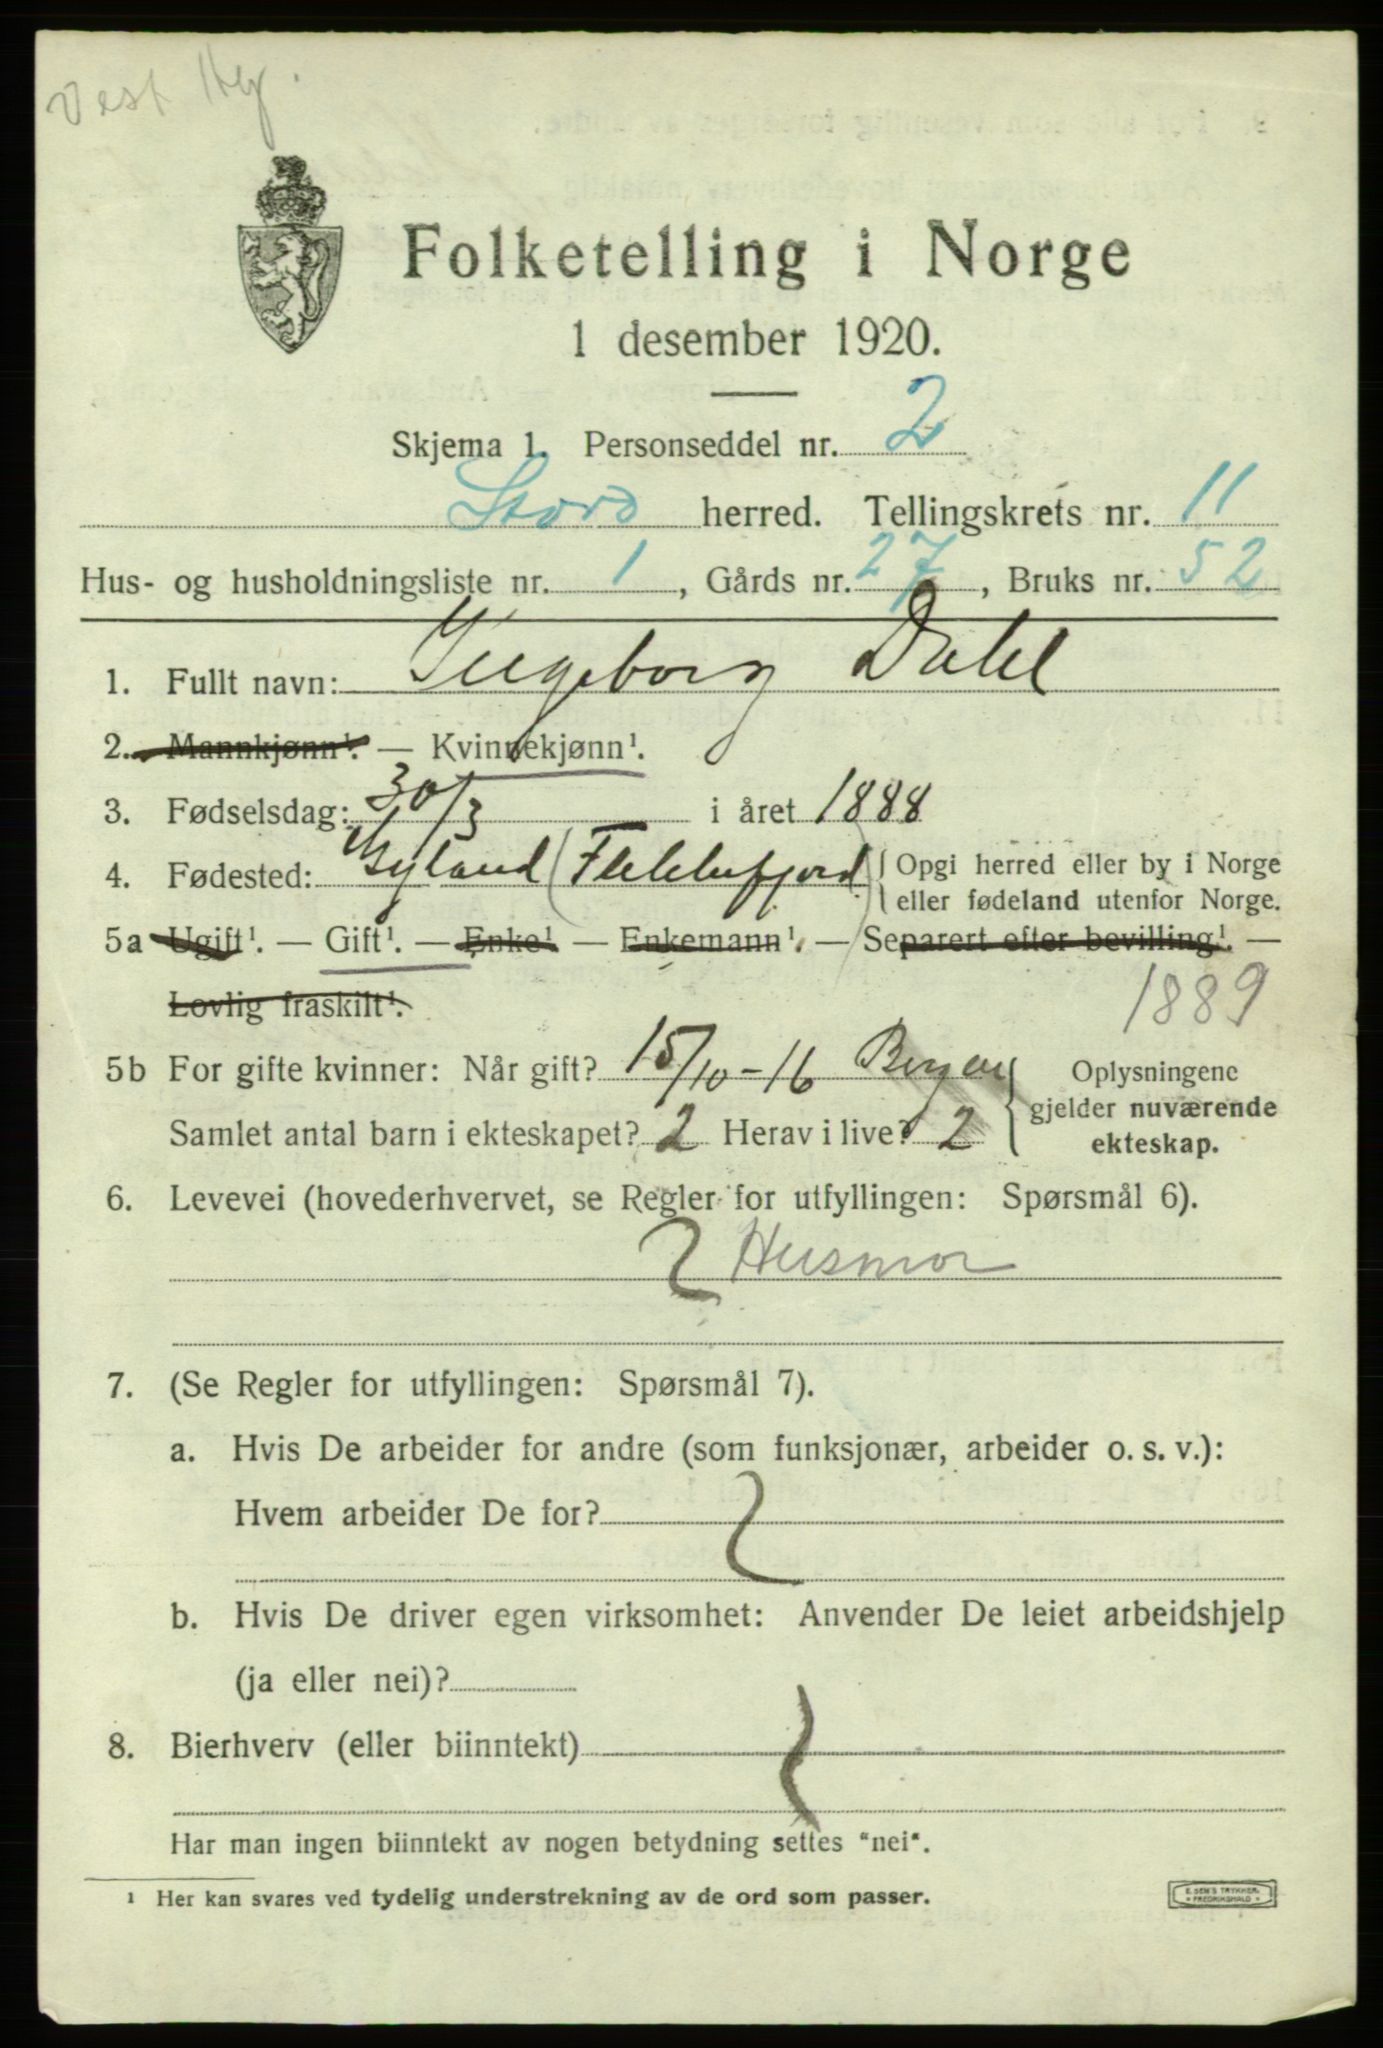 Vest Ag.
Folketelling i Norge
1 desember 1920.
Skjema 1. Personseddel nr. 2
Stord herred. Tellingskrets nr. 11
Hus- og husholdningsliste nr. 1, Gårds nr. 27, Bruks nr. 52
1. Fullt navn: Ingeborg Dahl
2. Mannkjønn¹. — Kvinnekjønn¹.
3. Fødselsdag: 30/3 i året 1888
4. Fødested: Gyland (Flekkefjord) { Opgi herred eller by i Norge
eller fødeland utenfor Norge.
5a Ugift¹. — Gift¹. — Enke¹ — Enkemann¹. — Separert efter bevilling¹. —
Lovlig fraskilt¹.
1889
5b For gifte kvinner: Når gift? 15/10-16 Bergen
Samlet antal barn i ekteskapet? 2 Herav i live? 2
Oplysningene
gjelder nuværende
ekteskap.
6. Levevei (hovederhvervet, se Regler for utfyllingen: Spørsmål 6).
Husmor
7. (Se Regler for utfyllingen: Spørsmål 7).
a. Hvis De arbeider for andre (som funksjonær, arbeider o. s. v.):
Hvem arbeider De for?
b. Hvis De driver egen virksomhet: Anvender De leiet arbeidshjelp
(ja eller nei)?
8. Bierhverv (eller biinntekt)
Har man ingen biinntekt av nogen betydning settes "nei".
¹ Her kan svares ved tydelig understrekning av de ord som passer.
E. SEM'S TRYKKERI
FREDRIKSHALD